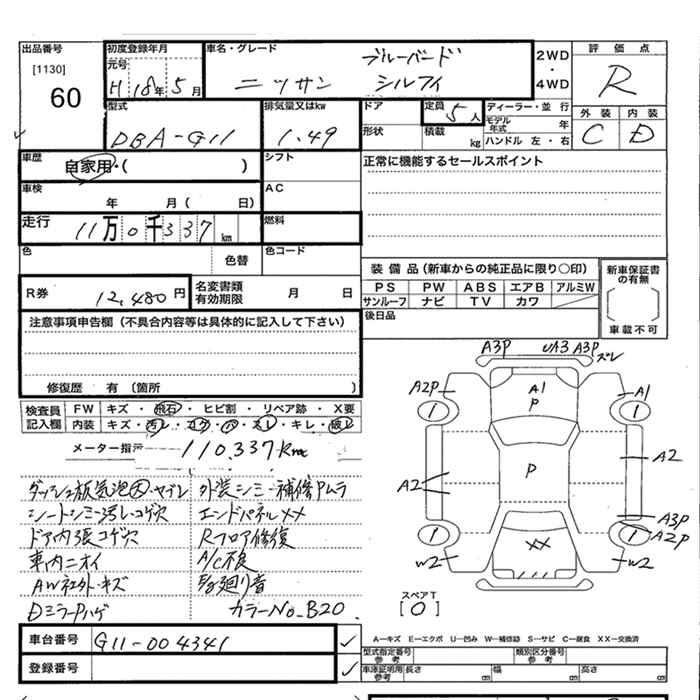 出品番号 初度登録年月 車名・グレード 2WD・4WD 評価点
[1130] 元号 ブルーバード
60 H 18年 5月 ニッサン シルフィ R
型式 排気量又はkw ドア 定員 5人 ディーラー・並行 外装 内装
DBA-G11 1.49 形状 積載 kg モデル年式 年 C D
ハンドル 左・右
車歴 自家用・( ) シフト 正常に機能するセールスポイント
車検 年 月( 日) AC
走行 11万0千337km 燃料
色 色替 色コード
装備品(新車からの純正品に限り○印) 新車保証書の有無
R券 12,480円 名変書類有効期限 月 日 PS PW ABS エアB アルミW
サンルーフ ナビ TV カワ 車載不可
注意事項申告欄(不具合内容等は具体的に記入して下さい) 後日品
修復歴 有(箇所 )
検査員記入欄 FW キズ・飛石・ヒビ割・リペア跡・X要
内装 キズ・汚レ・コゲ・穴・スレ・キレ・破レ
メーター指示 110,337km
ダッシュ板気泡・ヤブレ 外装シミ・補修ムラ
シートシミ・汚レ・コゲ穴 エンドパネルXX
ドア内張コゲ穴 Rフロア修復
車内ニオイ A/C不良
AW社外・キズ 廻り音
DミラーPハゲ カラーNo.B20
A3P UA3 A3P ズレ
A2P A1 P A1
1 1
A2 P A2
A3P
1 1 A2P
W2 XX W2
スペアT
[0]
車台番号 G11-004341
登録番号
A―キズ E―エクボ U―凹み W―補修跡 S―サビ C―腐食 XX―交換済
型式指定番号 参考 類別区分番号 参考
車庫証明用 参考 長さ cm 幅 cm 高さ cm